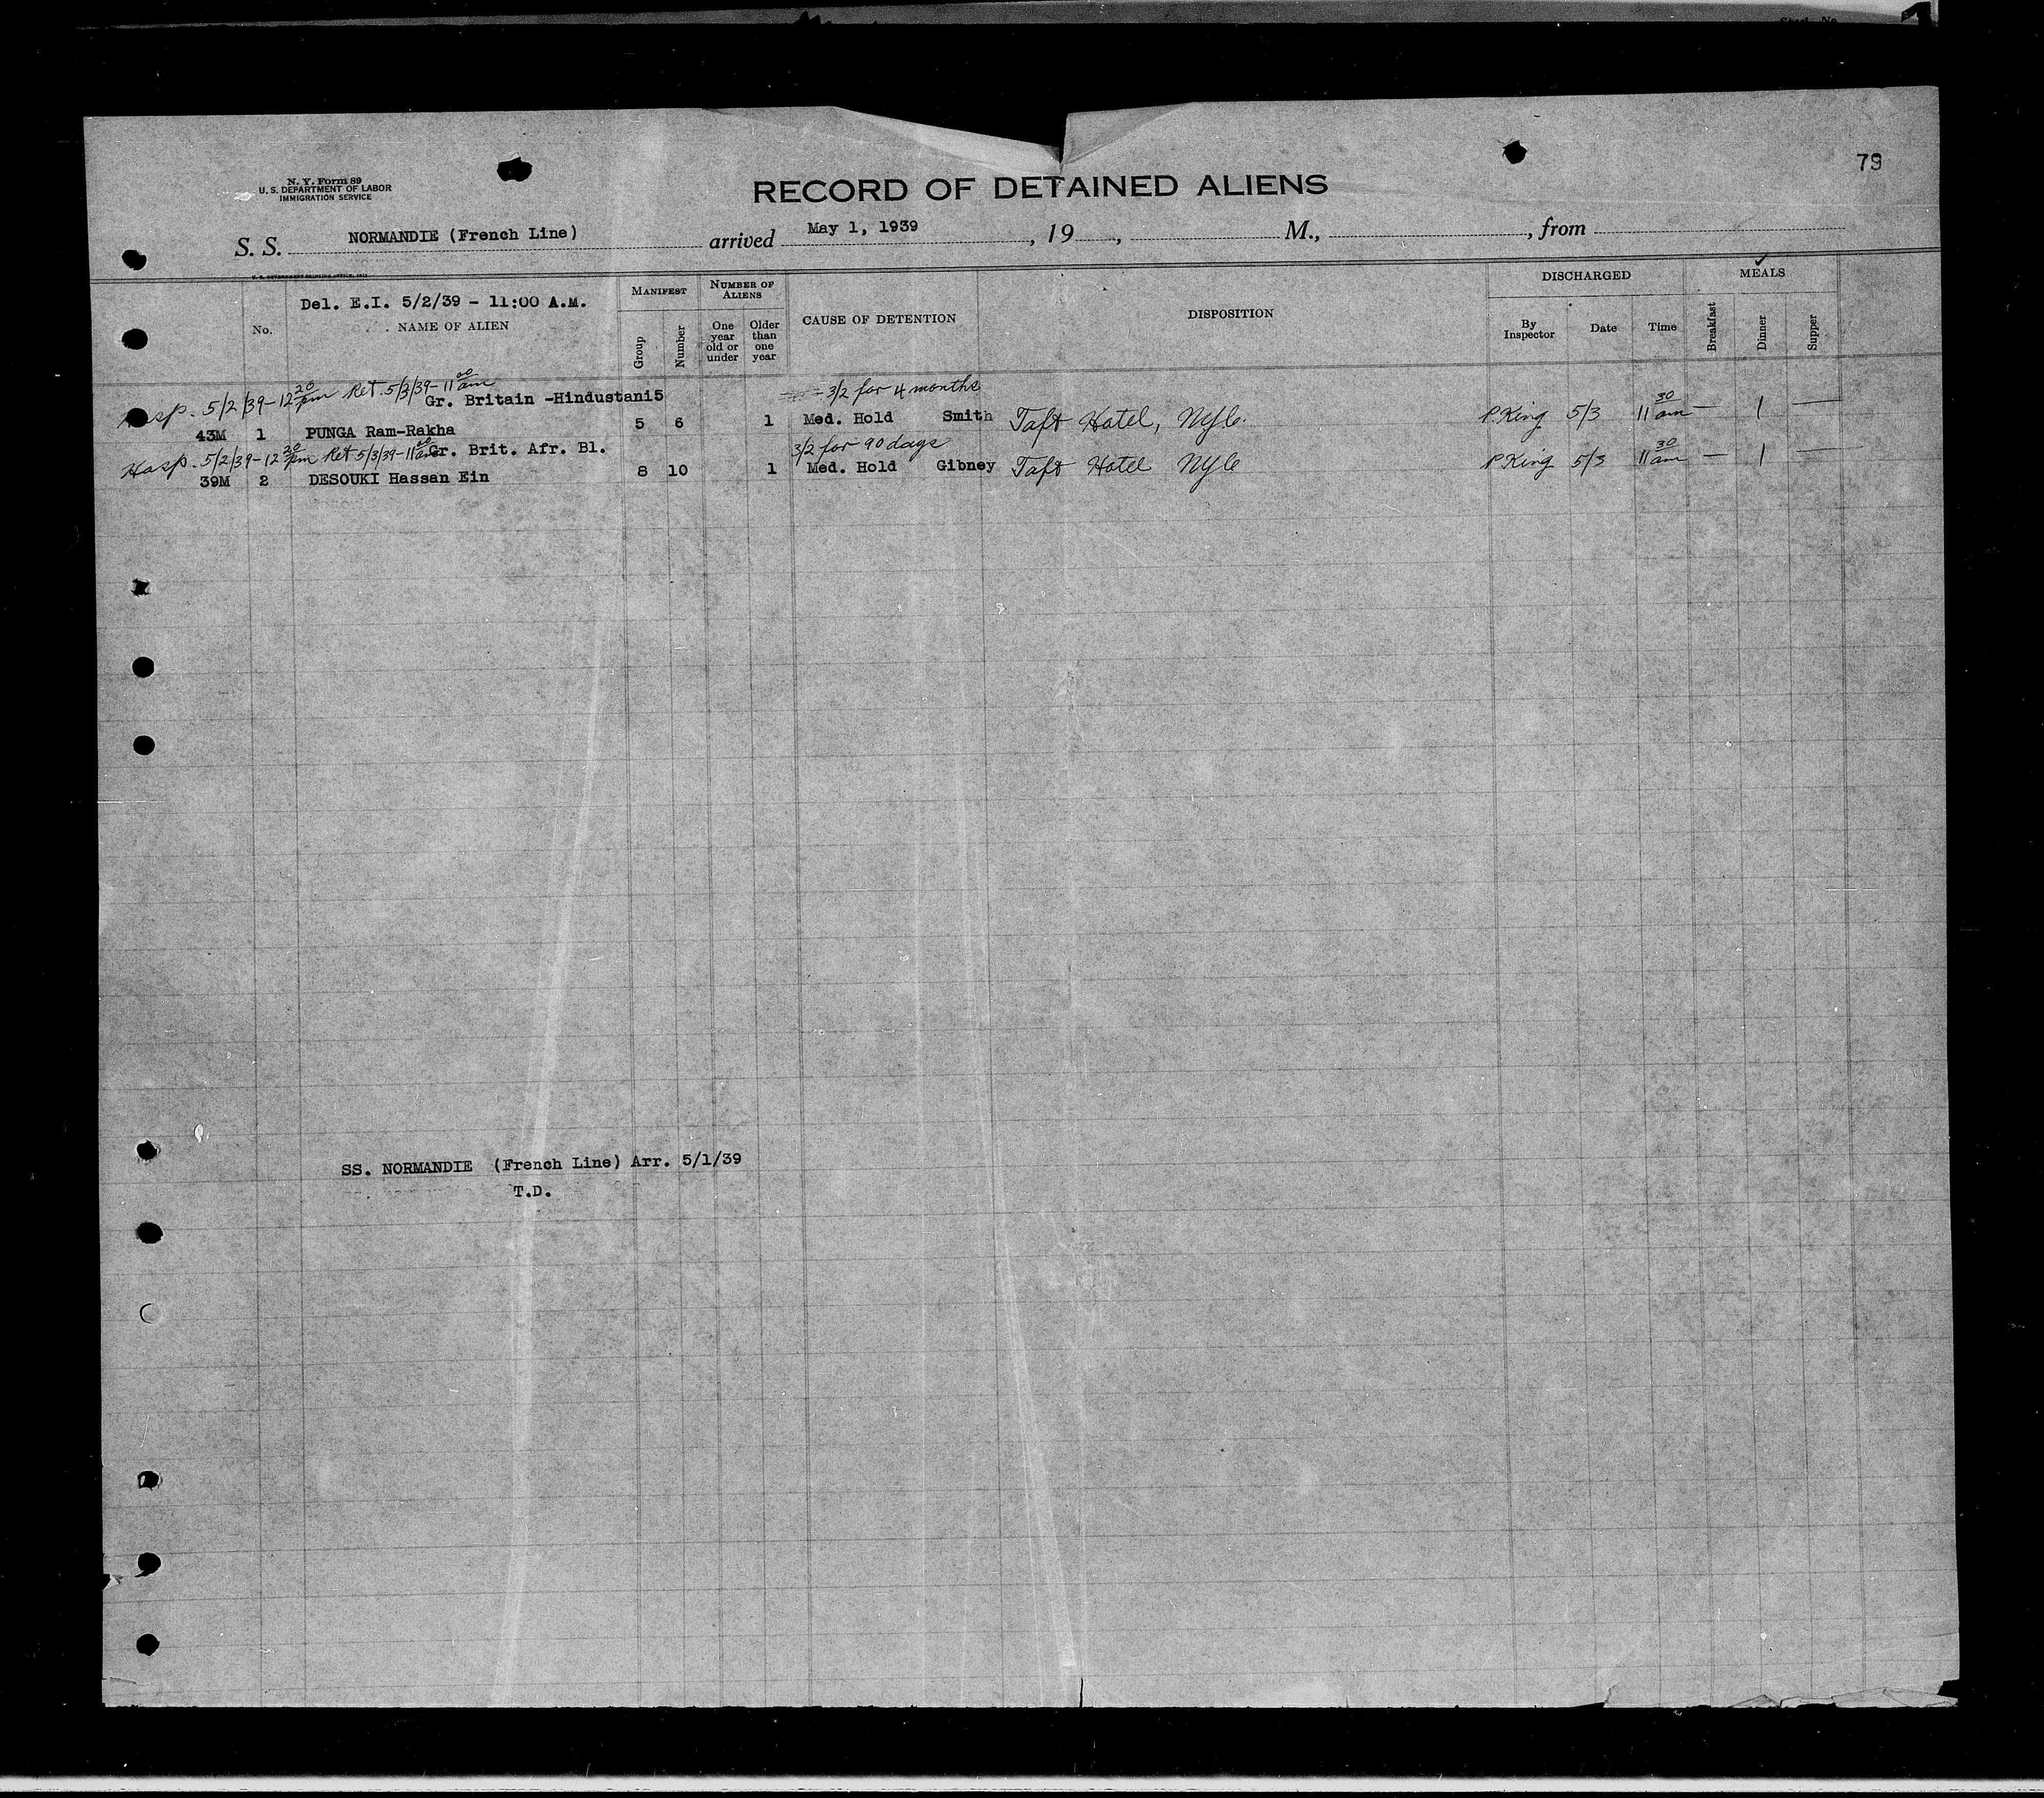 79
N. Y. Form 89
U. S. DEPARTMENT OF LABOR
IMMIGRATION SERVICE
RECORD OF DETAINED ALIENS
S. S. NORMANDIE (French Line) arrived May 1, 1939, 19, M., , from
Del. E.I. 5/2/39 - 11:00 A.M.
No. NAME OF ALIEN
MANIFEST
Group Number
NUMBER OF ALIENS
One year old or under
Older than one year
CAUSE OF DETENTION
DISPOSITION
DISCHARGED
By Inspector Date Time
✓
MEALS
Breakfast Dinner Supper
Hosp. 5/2/39 - 12 20 pm Ret. 5/3/39 - 11 00 am 3/2 for 4 months
Gr. Britain -Hindustani5
43M 1 PUNGA Ram-Rakha 5 6 1 Med. Hold Smith Taft Hotel, NYC. P. King 5/3 11 30 am — 1 —
Hosp. 5/2/39 - 12 20 pm Ret 5/3/39 - 11 00 am Gr. Brit. Afr. Bl. 3/2 for 90 days
39M 2 DESOUKI Hassan Ein 8 10 1 Med. Hold Gibney Taft Hotel NYC P King 5/3 11 30 am — 1 —
SS. NORMANDIE (French Line) Arr. 5/1/39
T.D.